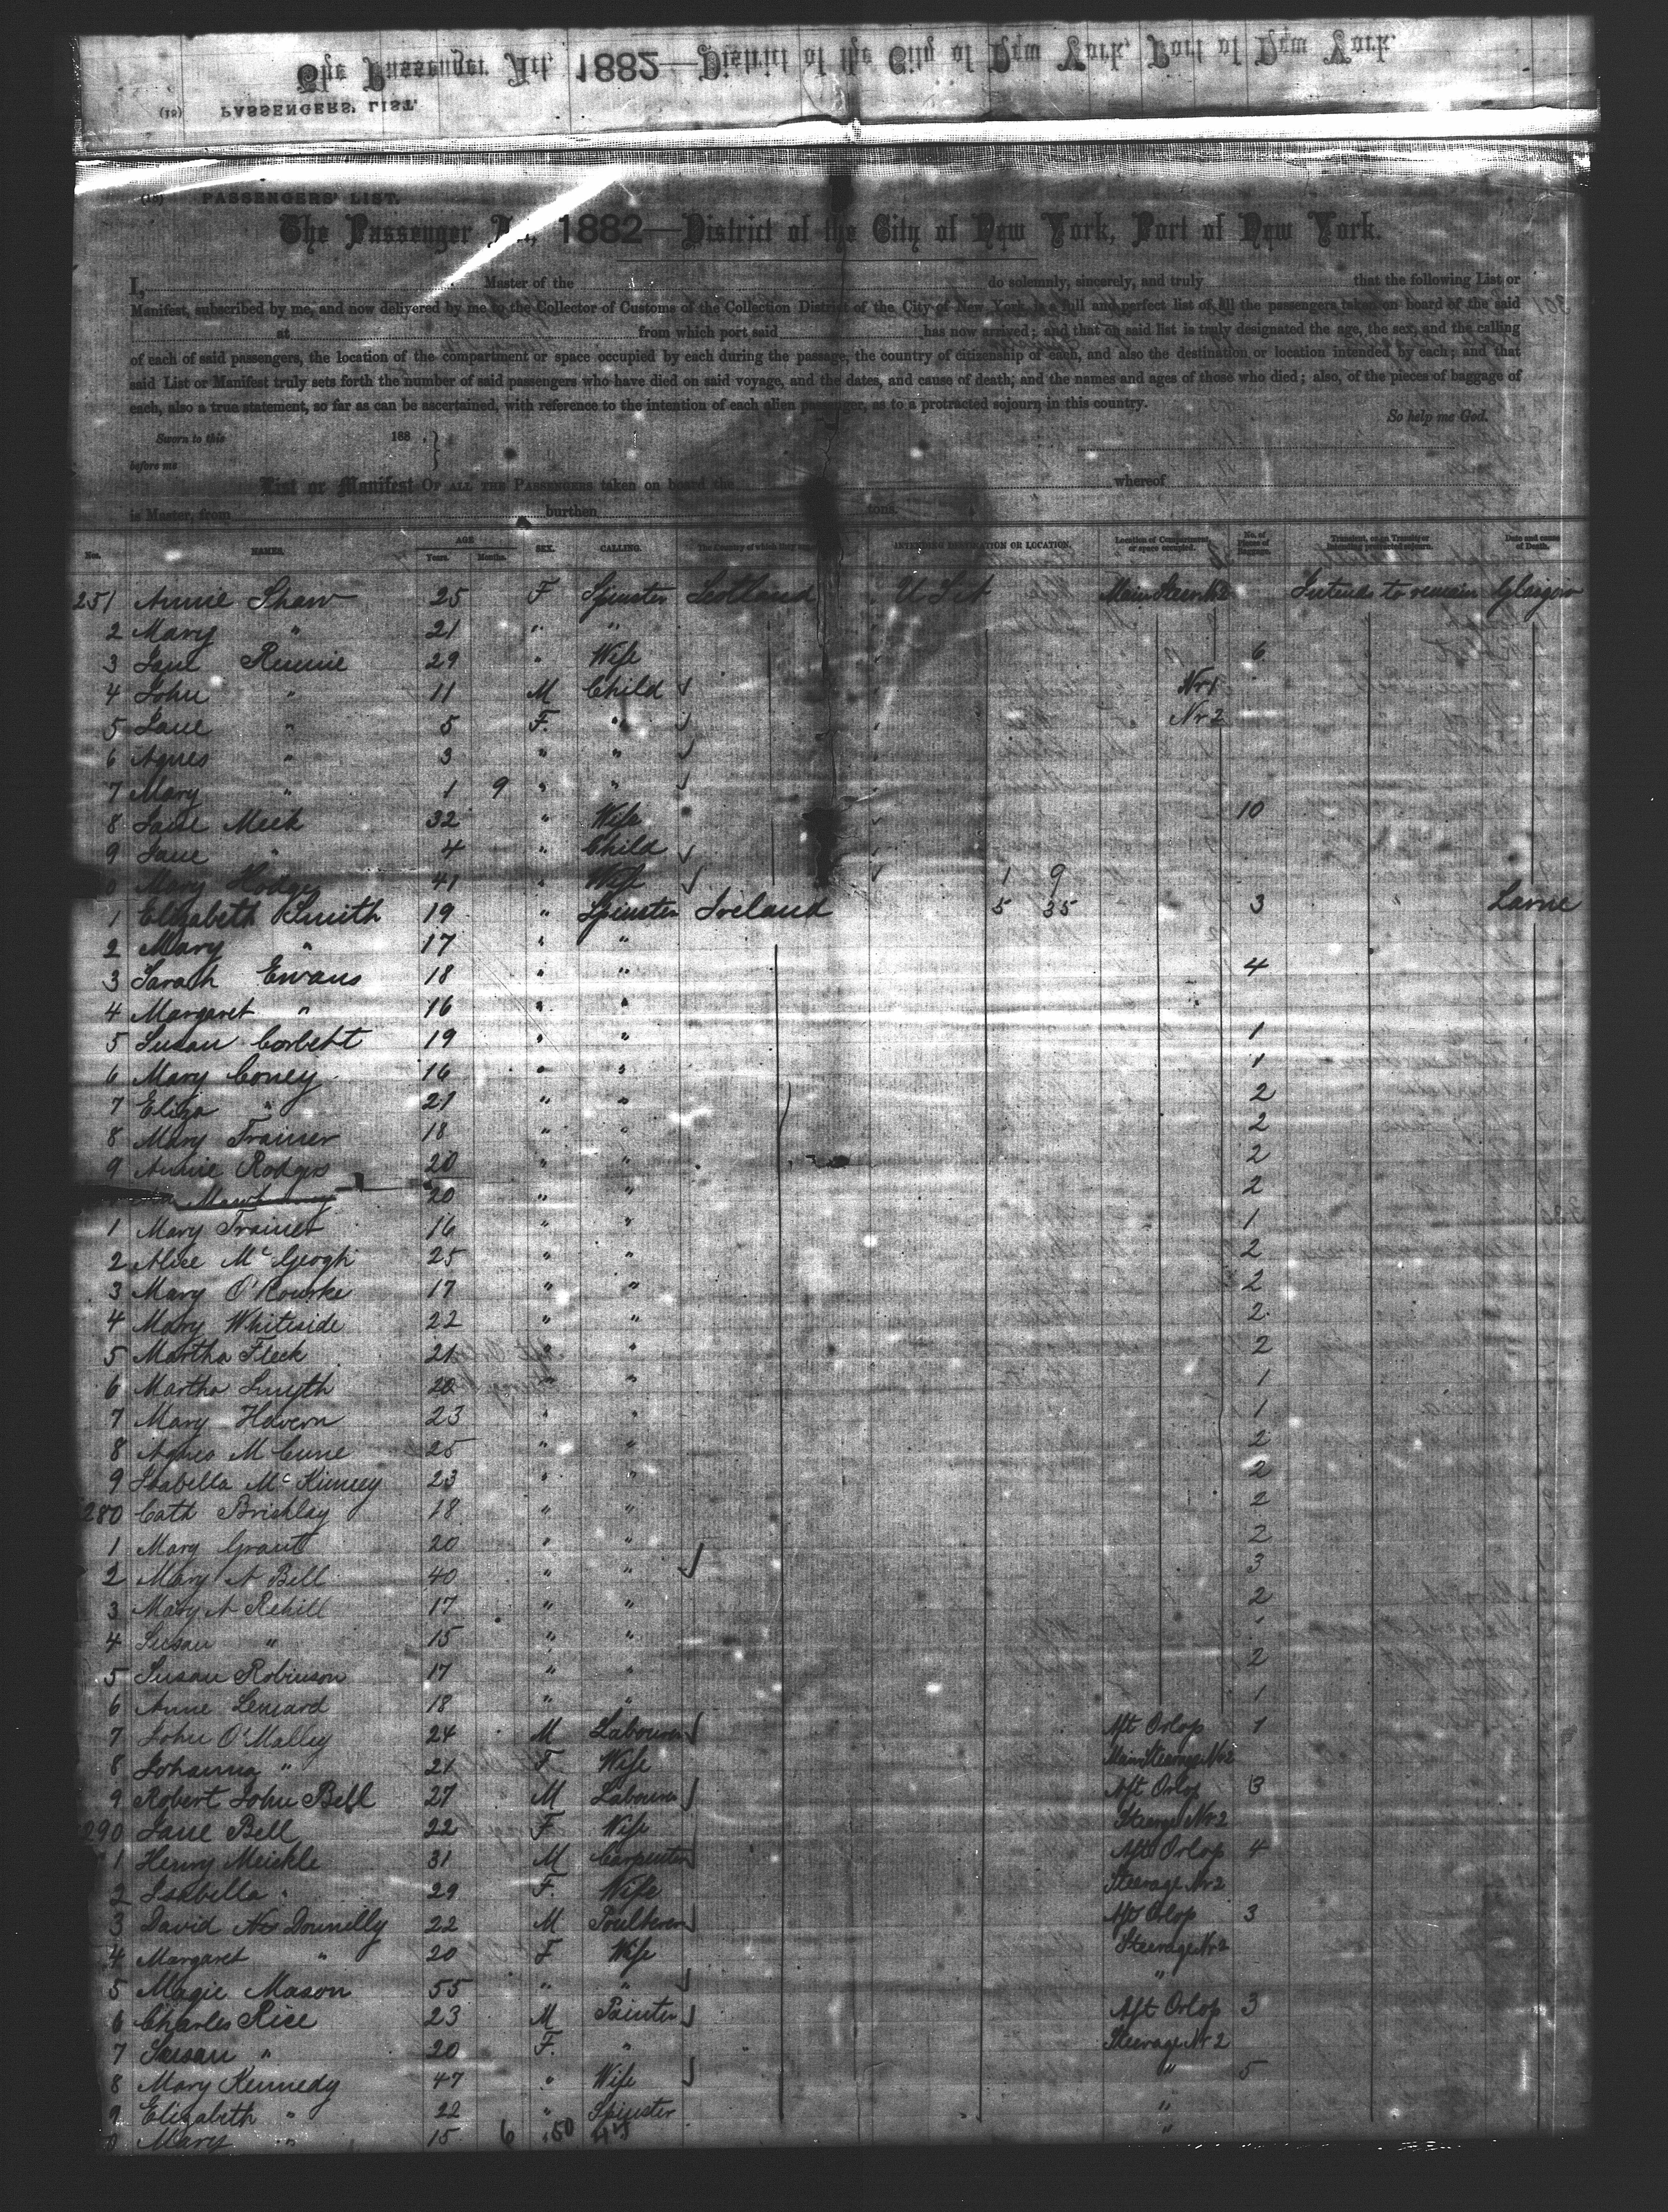 The Passenger Act, 1882—District of the City of New York, Port of New York.
(18) PASSENGERS' LIST.
(18) PASSENGERS' LIST.
The Passenger Act, 1882—District of the City of New York, Port of New York.
I, Master of the do solemnly, sincerely, and truly that the following List or
Manifest, subscribed by me, and now delivered by me to the Collector of Customs of the Collection District of the City of New York, is a full and perfect list of all the passengers taken on board of the said
at from which port said has now arrived; and that on said list is truly designated the age, the sex, and the calling
of each of said passengers, the location of the compartment or space occupied by each during the passage, the country of citizenship of each, and also the destination or location intended by each; and that
said List or Manifest truly sets forth the number of said passengers who have died on said voyage, and the dates, and cause of death, and the names and ages of those who died; also, of the pieces of baggage of
each, also a true statement, so far as can be ascertained, with reference to the intention of each alien passenger, as to a protracted sojourn in this country.
So help me God.
Sworn to this 188 .
before me
List or Manifest OF ALL THE PASSENGERS taken on board the whereof
is Master, from burthen tons.
Nos. NAMES. AGE Years. Months. SEX. CALLING. The Country of which they INTENDING DESTINATION OR LOCATION. Location of Compartment, or space occupied. No. of Pieces of Baggage. Transient, or in Transit, or intending protracted sojourn. Date and cause of Death.
251 Annie Shaw 25 F Spinster Scotland U St Main Steer Nr2 Intends to remain Glasgow
2 Mary " 21 " "
3 Jane Rennie 29 " Wife 6
4 John " 11 M Child Nr 1
5 Jane " 5 F. " Nr 2
6 Agnes " 3 " "
7 Mary " 1 9 " "
8 Jane Meek 32 " Wife 10
9 Jane " 4 " Child
0 Mary Hodge 41 " Wife 1 9
1 Elizabeth Smith 19 " Spinster Ireland 5 35 3 Larne
2 Mary " 17 " "
3 Sarah Ewans 18 " " 4
4 Margaret " 16 " "
5 Susan Corbett 19 " " 1
6 Mary Coney 16 " " 1
7 Eliza " 21 " " 2
8 Mary Trainer 18 " " 2
9 Annie Rodgers 20 " " 2
20 " " 2
1 Mary Trainer 16 " " 1
2 Alice McGeogh 25 " " 2
3 Mary O'Rourke 17 " " 2
4 Mary Whiteside 22 " " 2
5 Martha Fleck 21 " " 2
6 Martha Smyth 20 " " 1
7 Mary Havern 23 " " 1
8 Agnes McCune 25 " " 2
9 Isabella McKinney 23 " " 2
280 Cath Brishlay 18 " " 2
1 Mary Grant 20 " " 2
2 Mary A Bell 40 " " 3
3 Mary A Rehill 17 " " 2
4 Susan " 15 " "
5 Susan Robinson 17 " " 2
6 Anne Lenard 18 " " 1
7 John O'Malley 24 M Labourer Aft Orlop 1
8 Johanna " 21 F Wife Main Steerage Nr2
9 Robert John Bell 27 M Labourer Aft Orlop 3
290 Jane Bell 22 F Wife Steerage Nr 2
1 Henry Meickle 31 M Carpenter Aft Orlop 4
2 Isabella " 29 F. Wife Steerage Nr2
3 David Donnelly 22 M Aft Orlop 3
4 Margaret " 20 F Wife Steerage Nr2
5 Magie Mason 55 " " "
6 Charles Rice 23 M Painter Aft Orlop 3
7 Susan " 20 F. " Steerage Nr 2
8 Mary Kennedy 47 " Wife " 5
9 Elizabeth " 22 " Spinster "
0 Mary " 15 6 50 "